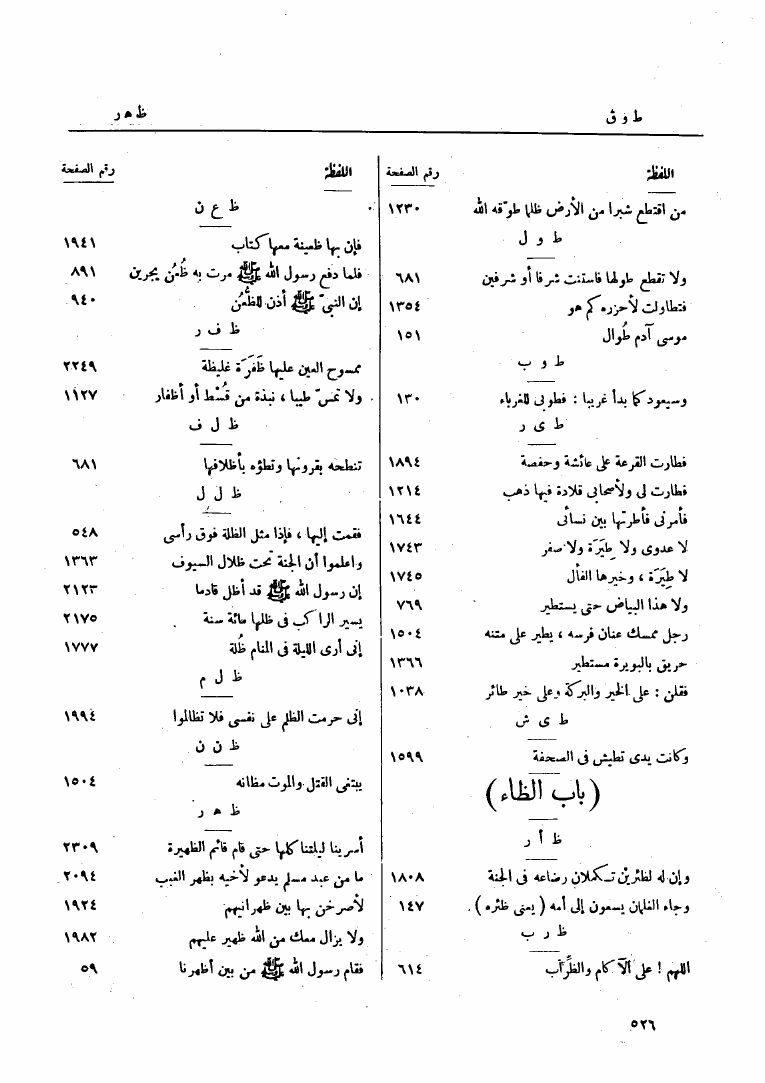 طوق
ظهر
اللفظة رقم الصفحة
من اقتطع شبرا من الأرض ظلما طوّقه الله ١٢٣٠
ط و ل
ولا تقطع طولها فاستنت شرفا أو شرفين ٦٨١
فتطاولت لأحزره كم هو ١٣٥٤
موسى آدم طُوال ١٥١
ط و ب
وسيعود كما بدأ غريبا : فطوبى للغرباء ١٣٠
ط ى ر
فطارت القرعة على عائشة وحفصة ١٨٩٤
فطارت لى ولأصحابى قلادة فيها ذهب ١٢١٤
فأمرنى فأطرتها بين نسائى ١٦٤٤
لا عدوى ولا طِيَرَة ولا صفر ١٧٤٣
لا طِيَرَة ، وخيرها الفأل ١٧٤٥
ولا هذا البياض حتى يستطير ٧٦٩
رجل ممسك عنان فرسه ، يطير على متنه ١٥٠٤
حريق بالبويرة مستطير ١٣٦٦
فقلن : على الخير والبركة وعلى خير طائر ١٠٣٨
ط ى ش
وكانت يدى تطيش فى الصحفة ١٥٩٩
( باب الظاء )
ظ أ ر
وإن له لظئرين تكملان رضاعه فى الجنة ١٨٠٨
وجاء الغلمان يسعون إلى أمه ( يعنى ظئره ) . ١٤٧
ظ ر ب
اللهم ! على الآكام والظِّراب ٦١٤
اللفظة رقم الصفحة
ظ ع ن
فإن بها ظعينة معها كتاب ١٩٤١
فلما دفع رسول الله ﷺ مرت به ظُعُن يجرين ٨٩١
إن النبىّ ﷺ أذن للظُّعُن ٩٤٠
ظ ف ر
ممسوح العين عليها ظَفَرَة غليظة ٢٢٤٩
ولا تمسّ طيبا ، نبذة من قُسْط أو أظفار ١١٢٧
ظ ل ف
تنطحه بقرونها وتطؤه بأظلافها ٦٨١
ظ ل ل
فقمت إليها ، فإذا مثل الظلة فوق رأسى ٥٤٨
واعلموا أن الجنة تحت ظلال السيوف ١٣٦٣
إن رسول الله ﷺ قد أظل قادما ٢١٢٣
يسير الراكب فى ظلها مائة سنة ٢١٧٥
إنى أرى الليلة فى المنام ظُلة ١٧٧٧
ظ ل م
إنى حرمت الظلم على نفسى فلا تظالموا ١٩٩٤
ظ ن ن
يبتغى القتل والموت مظانه ١٥٠٤
ظ ه ر
أسرينا ليلتنا كلها حتى قام قائم الظهيرة ٢٣٠٩
ما من عبد مسلم يدعو لأخيه بظهر الغيب ٢٠٩٤
لأصرخن بها بين ظهرانيهم ١٩٢٤
ولا يزال معك من الله ظهير عليهم ١٩٨٢
فقام رسول الله ﷺ من بين أظهرنا ٥٩
٥٢٦